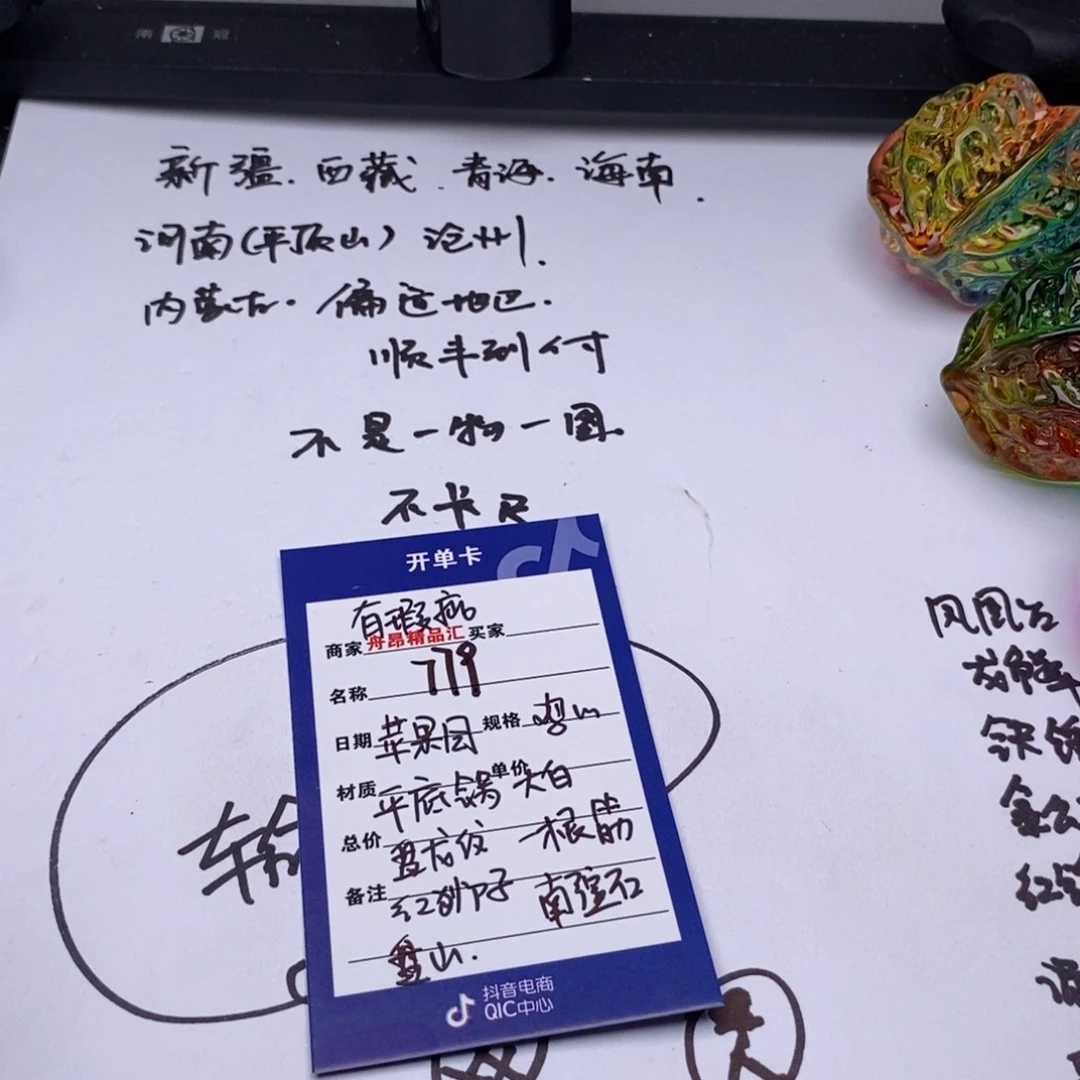 南 冠
新疆.西藏.青海.海南.
河南(平顶山)沧州.
内蒙古.偏远地区.
顺丰到付
不是一物一图
不卡尺
开单卡
有瑕疵
商家 舟昂精品汇 买家
779
名称
日期 苹果园 规格
材质 平底锅 单价 大白
总价 盘龙纹 一根筋
备注 红狮子 南疆石
盘山.
抖音电商
QIC中心
输
凤凰
红